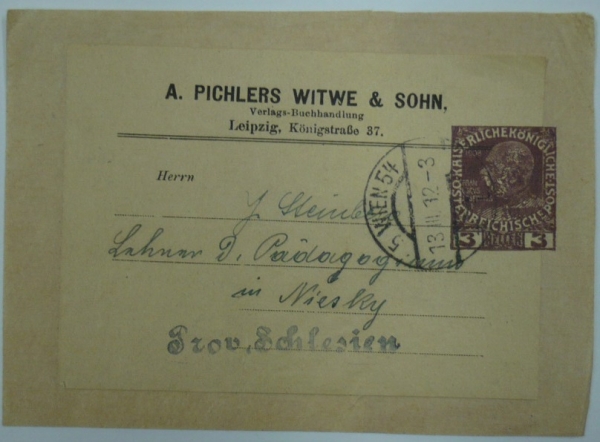 A. PICHLERS WITWE & SOHN,
Verlags-Buchhandlung
Leipzig, Königstraße 37.
KAISERLICHEKÖNIGLICHE
ÖSTERREICHISCHE POST
3 HELLER 3
5 WIEN 54
13 III 12-3
Herrn
J.
Lehrer D. Pädagogiums
in Niesky
Prov. Schlesien